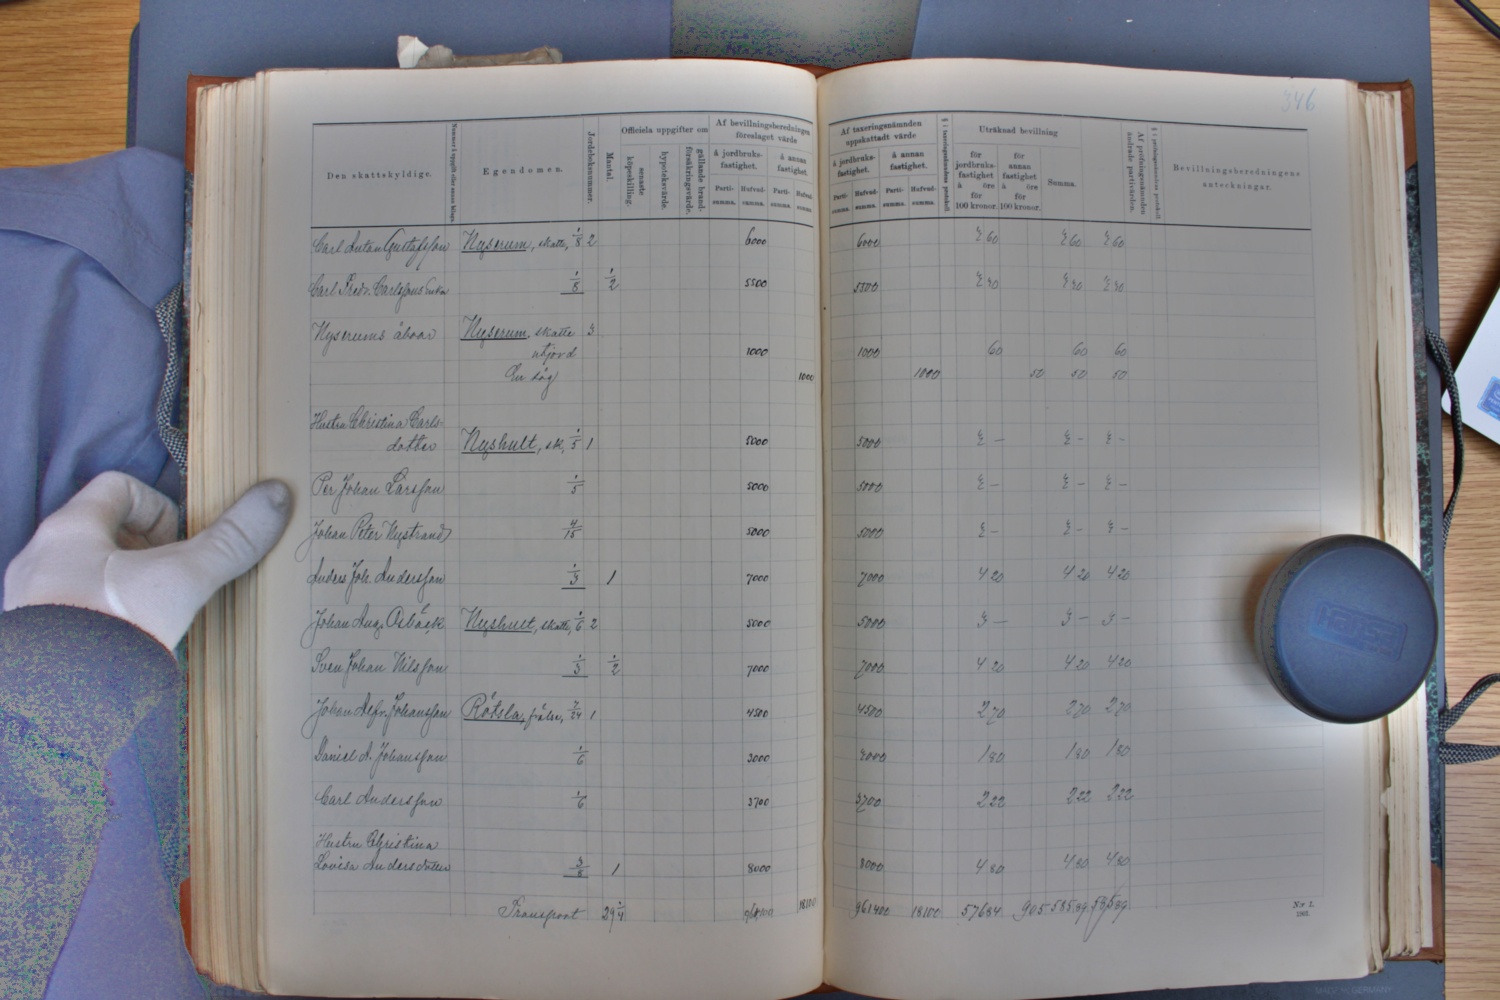 346
Den skattskyldige.
Egendomen.
Jordeboksnummer.
Mantal.
Officiela uppgifter om
senaste köpeskilling.
hypoteksvärde.
gällande brandförsäkringsvärde.
Af bevillningsberedningen föreslaget värde
å jordbruksfastighet.
å annan fastighet.
Partisumma.
Hufvudsumma.
Partisumma.
Hufvudsumma.
Af taxeringsnämnden uppskattadt värde
å jordbruksfastighet.
å annan fastighet.
Partisumma.
Hufvudsumma.
Partisumma.
Hufvudsumma.
§ i taxeringsnämndens protokoll.
Uträknad bevillning
för jordbruksfastighet à öre för 100 kronor.
för annan fastighet à öre för 100 kronor.
Summa.
Af pröfningsnämnden ändrade partivärden.
§ i pröfningsnämndens protokoll
Bevillningsberedningens anteckningar.
Carl Anton Gustafsson Nyserum, skatte, 1/8 2 6000 6000 3 60 3 60 3 60
Carl Fredr. Carlssons 1/8 1/2 5500 5500 3 30 3 30 3 30
Nyserums åboar Nyserum, skatte 3
utjord 1000 1000 60 60 60
En såg 1000 1000 50 50 50
Hustru Christina Carls-
dotter Nyshult, sk, 1/5 1 5000 5000 3 – 3 – 3 –
Per Johan Larsson 1/5 5000 5000 3 – 3 – 3 –
Johan Peter Nystrand 4/15 5000 5000 3 – 3 – 3 –
Anders Joh. Andersson 1/3 1 7000 7000 4 20 4 20 4 20
Johan Aug. Nyshult, skatte, 1/6 2 5000 5000 3 – 3 – 3 –
Sven Johan Nilsson 1/3 1/2 7000 7000 4 20 4 20 4 20
Johan Alfr. Johansson Rötsla, frälse, 7/24 1 4500 4500 2 70 2 70 2 70
Daniel A. Johansson 1/6 3000 3000 1 80 1 80 1 80
Carl Andersson 1/6 3700 3700 2 22 2 22 2 22
Hustru Christina
Lovisa Andersdotter 3/8 1 8000 8000 4 80 4 80 4 80
Transport 29 1/4 961400 18100 961400 18100 576 84 9 05 585 89 585 89
N:r 2.
1901.
MADE IN GERMANY